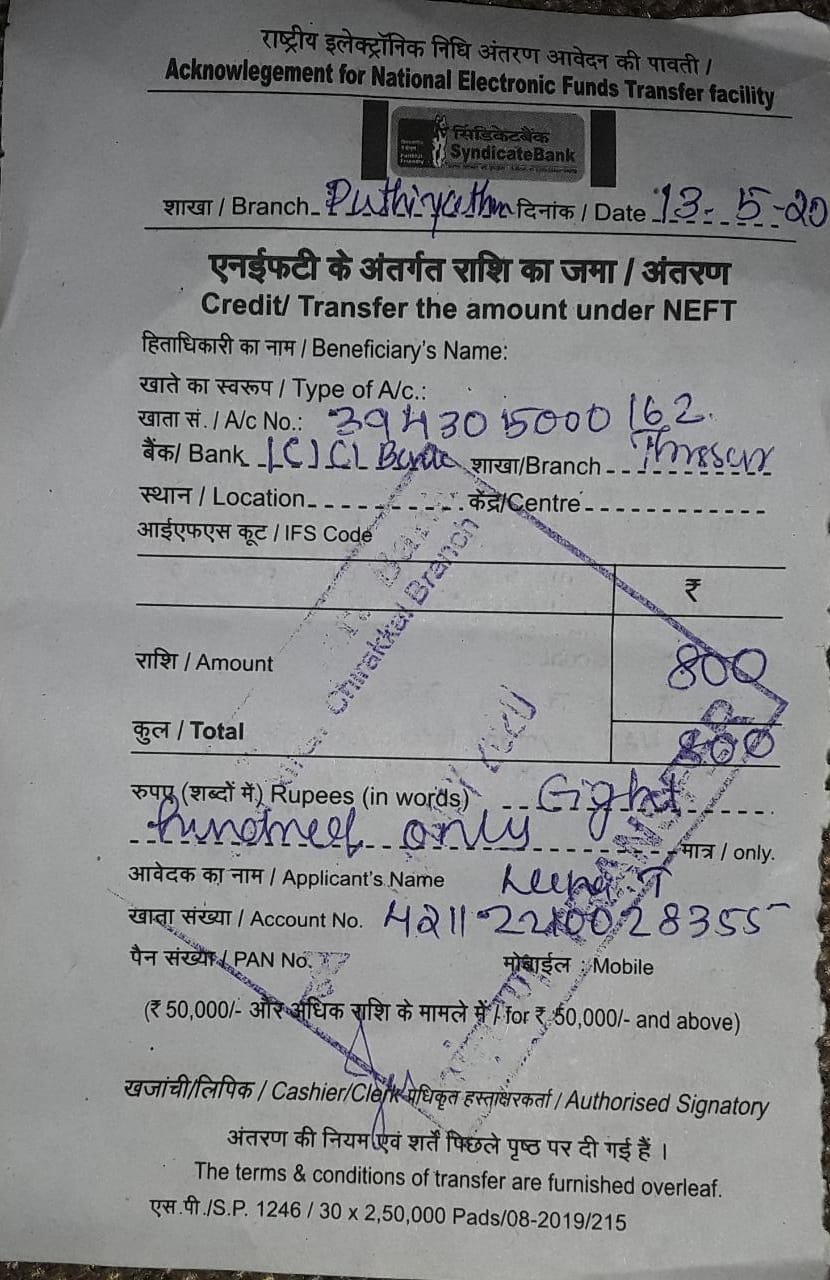 राष्ट्रीय इलेक्ट्रॉनिक निधि अंतरण आवेदन की पावती /
Acknowlegement for National Electronic Funds Transfer facility
सिंडिकेटबैंक
SyndicateBank
शाखा / Branch Puthiyatheru दिनांक / Date 13-5-20
एनईफटी के अंतर्गत राशि का जमा / अंतरण
Credit/ Transfer the amount under NEFT
हिताधिकारी का नाम / Beneficiary's Name:
खाते का स्वरूप / Type of A/c.:
खाता सं. / A/c No.: 394305000162.
बैंक/ Bank ICICI Bank शाखा/Branch Thrissur
स्थान / Location केंद्र/Centre
आईएफएस कूट / IFS Code
Chirakkal Branch
₹
राशि / Amount 800
कुल / Total 800
रुपए (शब्दों में) Rupees (in words) Eight
hundred only मात्र / only.
आवेदक का नाम / Applicant's Name Leena T
खाता संख्या / Account No. 42112210028355
पैन संख्या / PAN No. मोबाईल : Mobile
(₹ 50,000/- और अधिक राशि के मामले में / for ₹ 50,000/- and above)
खजांची/लिपिक / Cashier/Clerk प्रधिकृत हस्ताक्षरकर्ता / Authorised Signatory
अंतरण की नियम एवं शर्तें पिछले पृष्ठ पर दी गई हैं ।
The terms & conditions of transfer are furnished overleaf.
एस.पी./S.P. 1246 / 30 x 2,50,000 Pads/08-2019/215